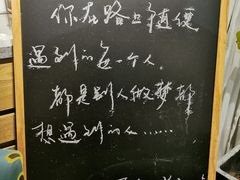 你在路上随便
遇到的每一个人，
都是别人做梦都
想遇到的人……